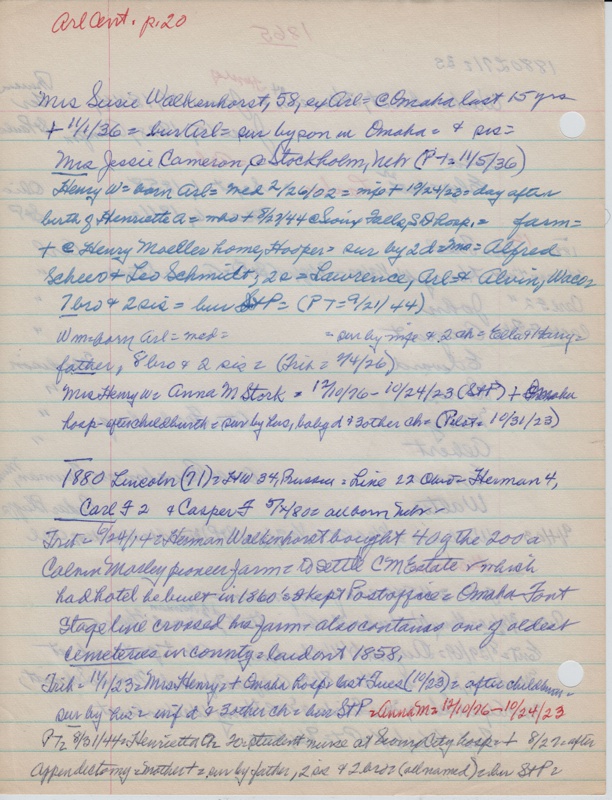 Arl Cent. p. 20
1865
Mrs Susie Walkenhorst, 58, ex Arl = C Omaha last 15 yrs
+ 11/1/36 = bur Arl = sur by son in Omaha = & sis =
Mrs Jessie Cameron, Stockholm, Nebr (PT = 11/5/36)
Henry W = born Arl = med 2/26/02 = wife + 10/24/23 = day after
birth of Henrietta A = who + 8/23/44 c Sioux Falls, SD hosp. = farm =
+ C Henry Moeller home, Hooper = sur by 2 d = Mrs = Alfred
Scheer & Leo Schmidt, 2 s = Lawrence, Arl = & Alvin, Waco
7 bro & 2 sis = bur St P = (PT = 9/21/44)
Wm = born Arl = med = = sur by wife & 2 ch = Eella & Harry =
father, 8 bro & 2 sis = (Trib = 7/4/26)
Mrs Henry W = Anna M Stork = 12/10/76 - 10/24/23 (St P) + Omaha
hosp = after childbirth = sur by hus, baby d & 3 other ch = (Pilot = 10/31/23)
1880 Lincoln (71) = HW 34, Prussia = Line 22 Owt = Herman 4,
Carl F 2 & Casper F 5/4/80 = all born Nebr =
Trib = 5/24/14 = Herman Walkenhorst bought 40 of the 200 a
Calvin Mosley pioneer farm = to settle CM Estate = which
had hotel he built in 1860's & kept Post office = Omaha Font
Stage line crossed his farm = also contains one of oldest
cemeteries in county = laid out 1858.
Trib = 11/1/23 = Mrs Henry = + Omaha hosp = last Tues (10/23) = after childbirth =
sur by hus = inf d & 3 other ch = bur St P = Anna M = 12/10/76 - 10/24/23
PT = 8/31/44 = Henrietta A = 20 = student nurse at Sioux City hosp = + 8/23 = after
appendectomy = mother + = sur by = father, 2 sis & 2 bro = (all named) = bur St P =